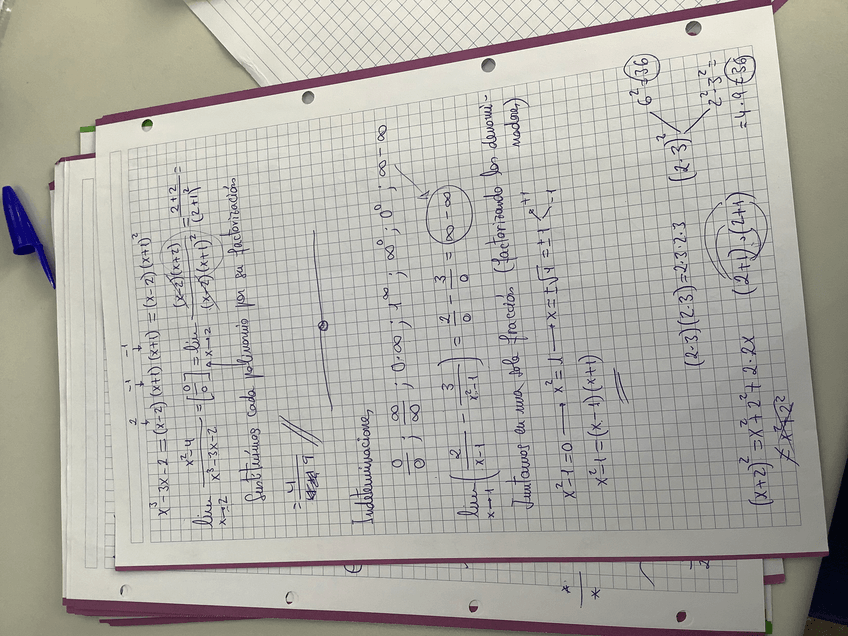 2 -1 -1
x³-3x-2 = (x-2)(x+1)(x+1) = (x-2)(x+1)²
lim x→2 x²-4 / x³-3x-2 = [0/0] = lim x→2 (x-2)(x+2) / (x-2)(x+1)² = 2+2 / (2+1)² =
Sustituimos cada polinomio por su factorización
= 4/9
Indeterminaciones
0/0 ; ∞/∞ ; 0·∞ ; 1^∞ ; ∞⁰ ; 0⁰ ; ∞-∞
lim x→1 (2/x-1 - 3/x²-1) = 2/0 - 3/0 = ∞-∞
Juntamos en una sola fracción (factorizando los denomi-
nadores)
x²-1=0 → x²=1 → x=±√1 = ±1 +1 -1
x²-1 = (x-1)(x+1)
6²=36
(2·3)(2·3)=2·3·2·3 (2·3)²
2²·3²=
=4·9=36
(x+2)² = x²+2²+2·2x (2+1)·(2+1)
≠ x²+2²
*
*